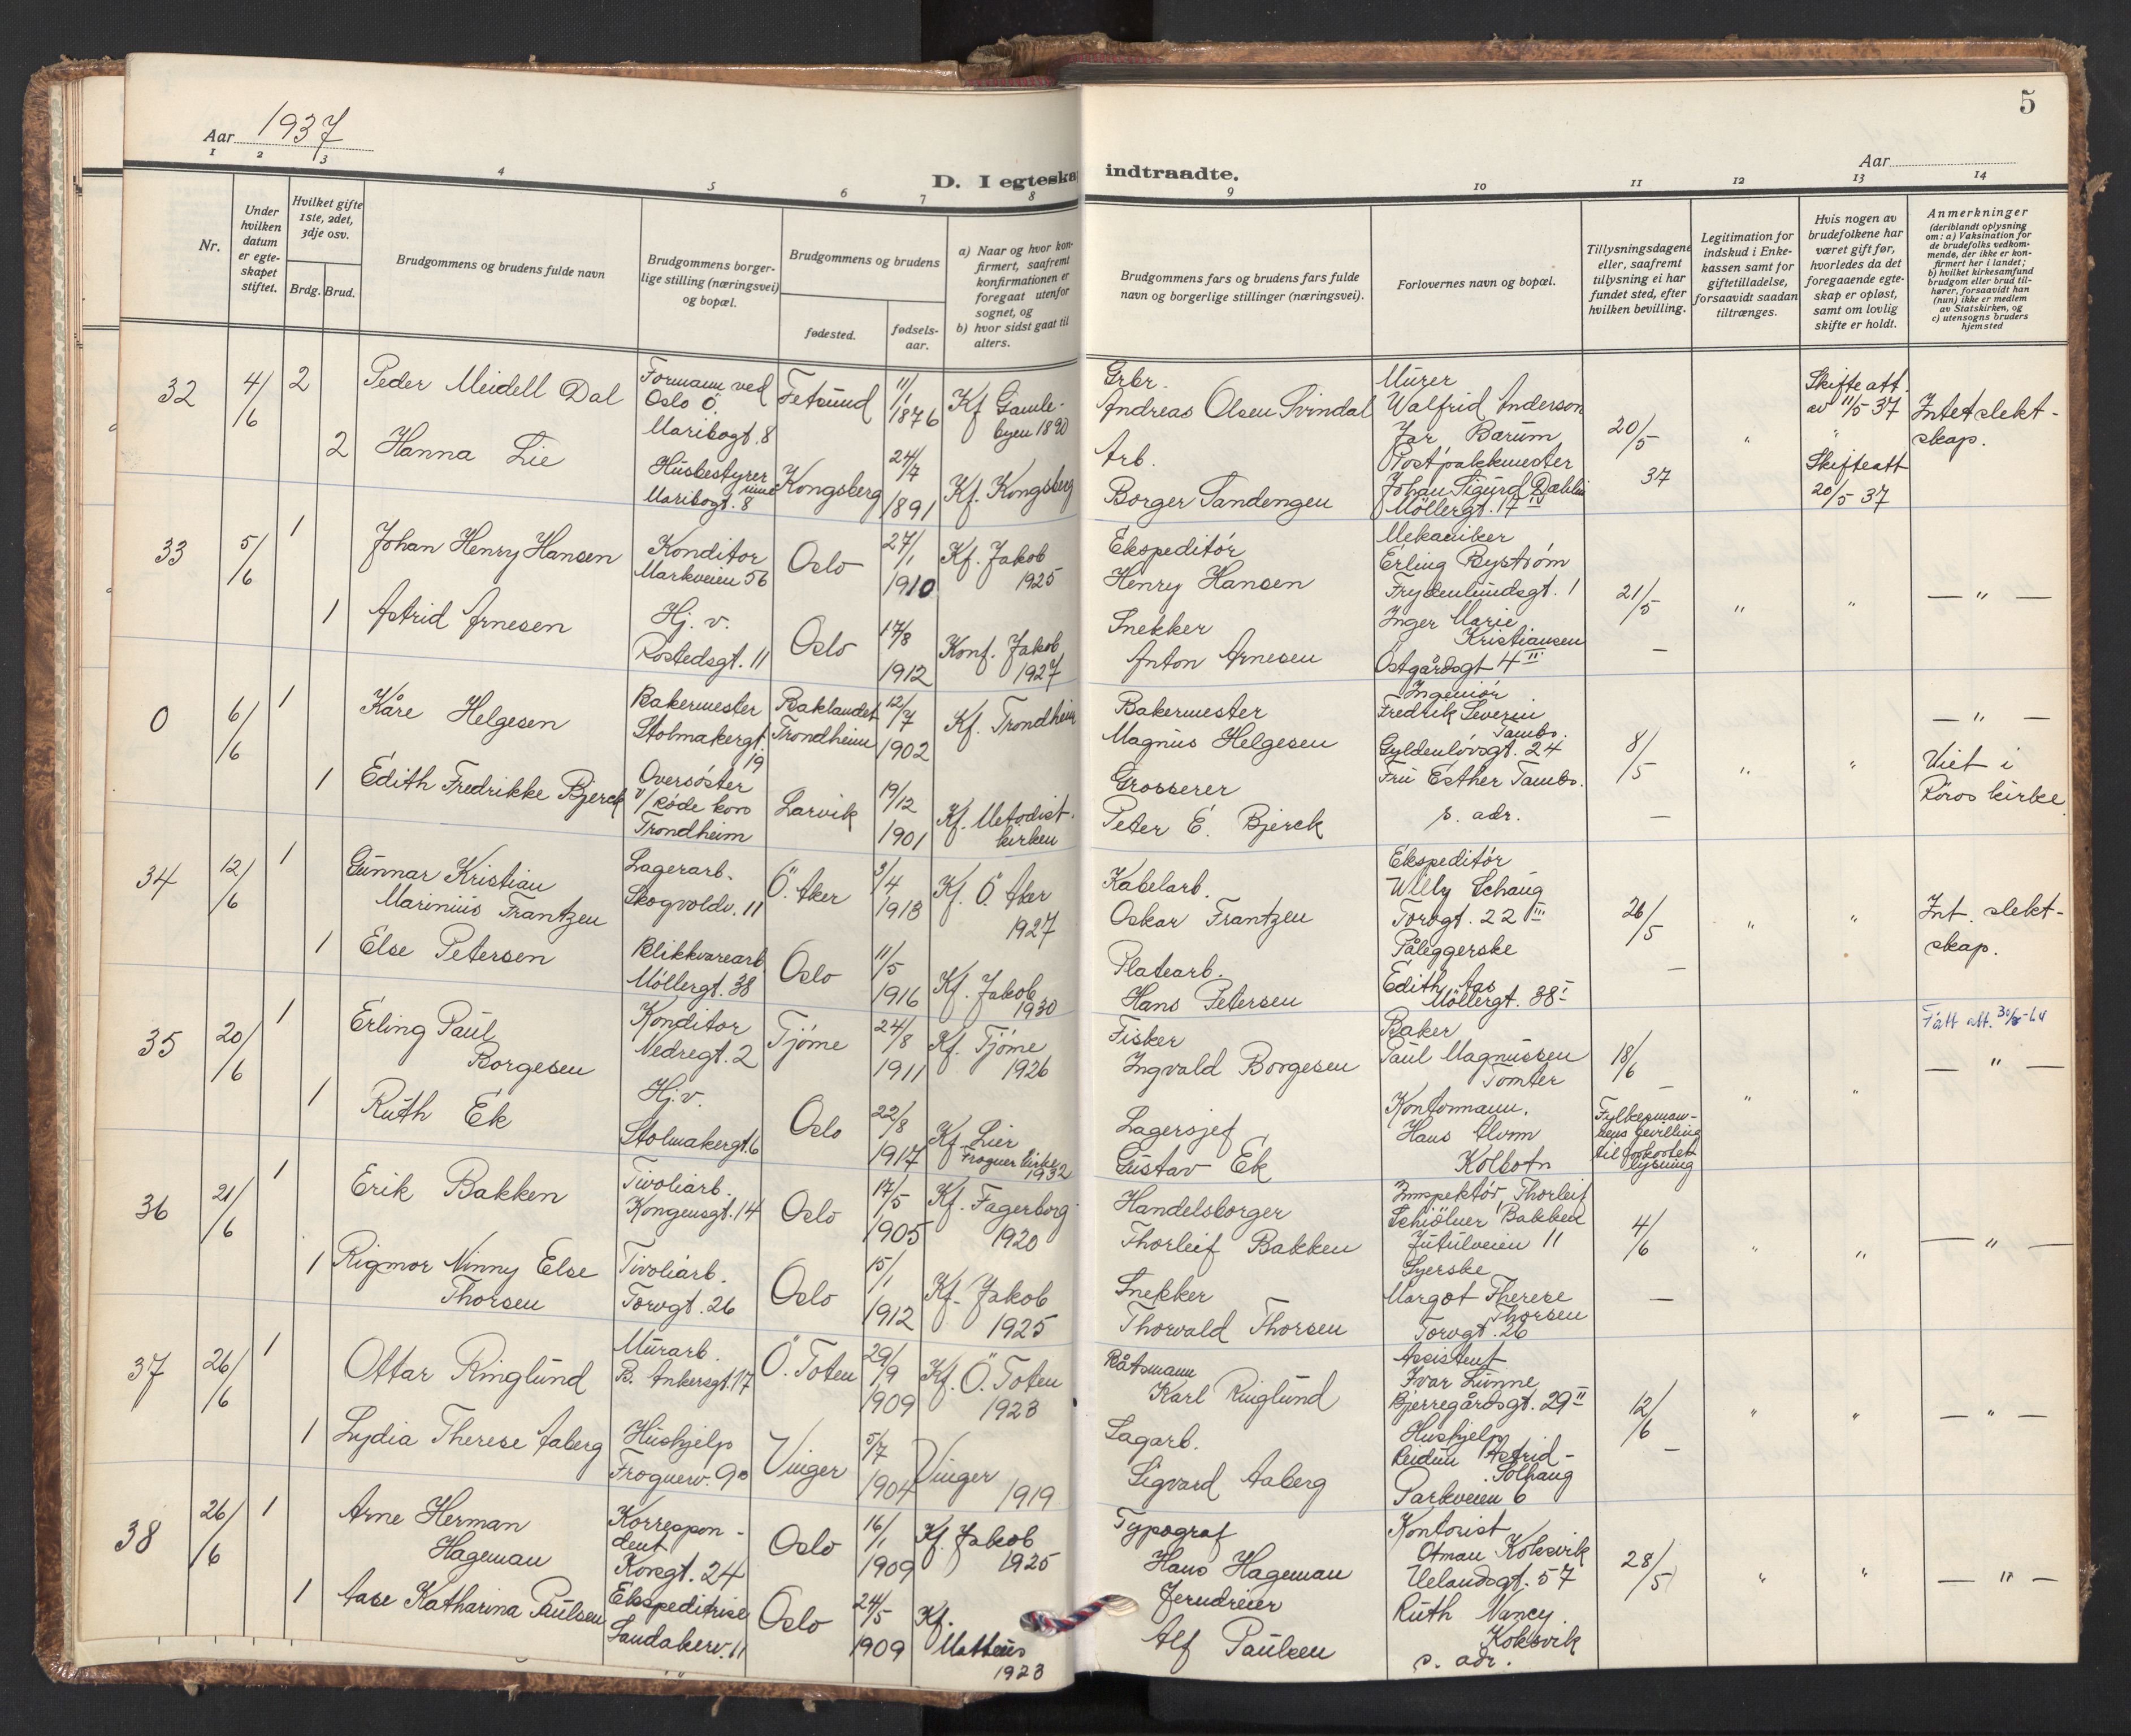 Aar 1937
D. I egteskap indtraadte.
Aar
5
1 2 3 4 5 6 7 8 9 10 11 12 13 14
Nr.
Under hvilken datum er egte-skapet stiftet.
Hvilket gifte 1ste, 2det, 3dje osv.
Brdg. Brud.
Brudgommens og brudens fulde navn
Brudgommens borger-lige stilling (næringsvei) og bopæl.
Brudgommens og brudens
fødested.
fødsels-aar.
a) Naar og hvor kon-firmert, saafremt konfirmationen er foregaat utenfor sognet, og
b) hvor sidst gaat til alters.
Brudgommens fars og brudens fars fulde navn og borgerlige stillinger (næringsvei).
Forlovernes navn og bopæl.
Tillysningsdagene eller, saafremt tillysning ei har fundet sted, efter hvilken bevilling.
Legitimation for indskud i Enke-kassen samt for giftetilladelse, forsaavidt saadan tiltrænges.
Hvis nogen av brudefolkene har været gift før, hvorledes da det foregaaende egte-skap er opløst, samt om lovlig skifte er holdt.
Anmerkninger (deriblandt oplysning om: a) Vaksination for de brudefolks vedkom-mende, der ikke er kon-firmert her i landet; b) hvilket kirkesamfund brudgom eller brud til-hører, forsaavidt han (hun) ikke er medlem av Statskirken, og c) utensogns bruders hjemsted
32 4/6 2 Peder Meidell Dal
Formann ved Oslo Ö. Maribogt. 8
Fetsund 11/1 1876 Kf. Gamle-byen 1890
Grbr. Andreas Olsen Svindal
Murer Walfrid Anderson Jar Bærum
20/5 37 "
Skifteatt. av 11/5 37
Intet slekt-skap.
2 Hanna Lie
Husbestyrer Maribogt. 8
Kongsberg 24/7 1891 Kf. Kongsberg
Arb. Borger Tandengen
Postpakkmester Johan Sigurd Dæhlin Möllergt. 17 IV
Skifteatt 20/5 37
33 5/6 1 Johan Henry Hansen
Konditor Markveien 56
Oslo 27/1 1910 Kf. Jakob 1925
Ekspeditör Henry Hansen
Mekaniker Erling Byström Frydenlundsgt. 1
21/5 - " " — " —
1 Astrid Arnesen
Hj. v. Rostedsgt. 11
Oslo 17/8 1912 Konf. Jakob 1927
Snekker Anton Arnesen
Inger Marie Kristiansen Östgårdsgt 4 II
0 6/6 1 Kåre Helgesen
Bakermester Stolmakergt. 19
Baklandet Trondheim 12/7 1902 Kf. Trondheim
Bakermester Magnus Helgesen
Ingeniör Fredrik Severin Tambs. Gyldenlövsgt. 24
8/5 - " " — " —
1 Edith Fredrikke Bjerck
Oversöster v/ Röde kors Trondheim
Larvik 19/12 1901 Kf. Metodist-kirken
Grosserer Peter E. Bjerck
Fru Esther Tambs. s. adr.
Viet i Röros kirke
34 12/6 1 Gunnar Kristian Marinius Frantzen
Lagerarb. Skogvoldv. 11
Ö. Aker 3/4 1913 Kf. Ö. Aker 1927
Kabelarb. Oskar Frantzen
Ekspeditör Willy Schaug Torvgt. 22 III
26/5 - " "
Int. slekt-skap.
1 Else Petersen
Blikkvarearb. Möllergt. 38
Oslo 11/5 1916 Kf. Jakob 1930
Platearb. Hans Petersen
Påleggerske Edith Aas Möllergt. 38 I
35 20/6 1 Erling Paul Borgesen
Konditor Nedregt. 2
Tjöme 24/8 1911 Kf. Tjöme 1926
Fisker Ingvald Borgesen
Baker Paul Magnussen Tomter
18/6 - " "
Fått att.
— " —
1 Ruth Ek
Hj. v. Stolmakergt. 6
Oslo 22/8 1917 Kf. Lier Frogner kirke 1932
Lagersjef Gustav Ek
Kontormann. Hans Kolbotn
Fylkesman-nens bevilling til forkortet lysning
36 21/6 1 Erik Bakken
Tivoliarb. Kongensgt. 14
Oslo 17/5 1905 Kf. Fagerborg 1920
Handelsborger Thorleif Bakken
Inspektör Thorleif Bakken Jutulveien 11
4/6 - " " — " —
1 Rigmor Ninny Else Thorsen
Tivoliarb. Torvgt. 26
Oslo 15/1 1912 Kf. Jakob 1925
Snekker Thorvald Thorsen
Syerske Margot Therese Thorsen Torvgt. 26
37 26/6 1 Ottar Ringlund
Murarb. B. Ankersgt. 17
Ö. Toten 29/9 1909 Kf. Ö. Toten 1923
Båtsmann Karl Ringlund
Assistent Ivar Lunne Bjerregårdsgt. 29 II
12/6 - " " — " —
1 Lydia Therese Aaberg
Hushjelp Frognerv. 9
Vinger 5/7 1904 Vinger 1919
Sagarb. Sigvard Aaberg
Hushjelp Reidun Astrid Solhaug Parkveien 6
38 26/6 1 Arne Herman Hageman
Korrespon-dent Korsgt. 24
Oslo 16/1 1909 Kf. Jakob 1925
Typograf Hans Hageman
Kontorist Otman Koksvik Uelandsgt. 57
28/5 " " — " —
1 Aase Katharina Paulsen
Ekspeditrise Sandakerv. 11
Oslo 24/5 1909 Kf. Matteus 1923
Jerndreier Alf Paulsen
Ruth Nancy Koksvik s. adr.